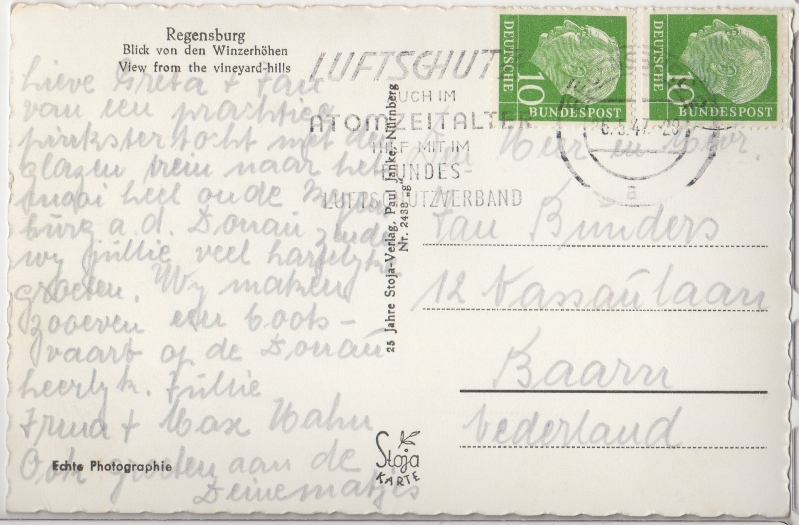 Regensburg
Blick von den Winzerhöhen
View from the vineyard-hills
LUFTSCHUTZ
AUCH IM
ATOMZEITALTER
HILF MIT IM
BUNDES-
LUFTSCHUTZVERBAND
DEUTSCHE
10
BUNDESPOST
DEUTSCHE
10
BUNDESPOST
a
Lieve Greta + Jan
van een prachtige
pinkstertocht met de
glazen trein naar het
mooi heel oude Regens
burg a.d. Donau zenden
wy jullie veel hartelyke
groeten. Wy maken
zooeven een boots-
vaart op de Donau
heerlyk. Jullie
Irma + Max Hahn
Ook groeten aan de
Deinematjes
25 Jahre Stoja-Verlag, Paul Janke, Nürnberg
Nr. 2438 „g"
Jan Bunders
12 Nassaulaan
Baarn
Nederland
Echte Photographie
Stoja
KARTE